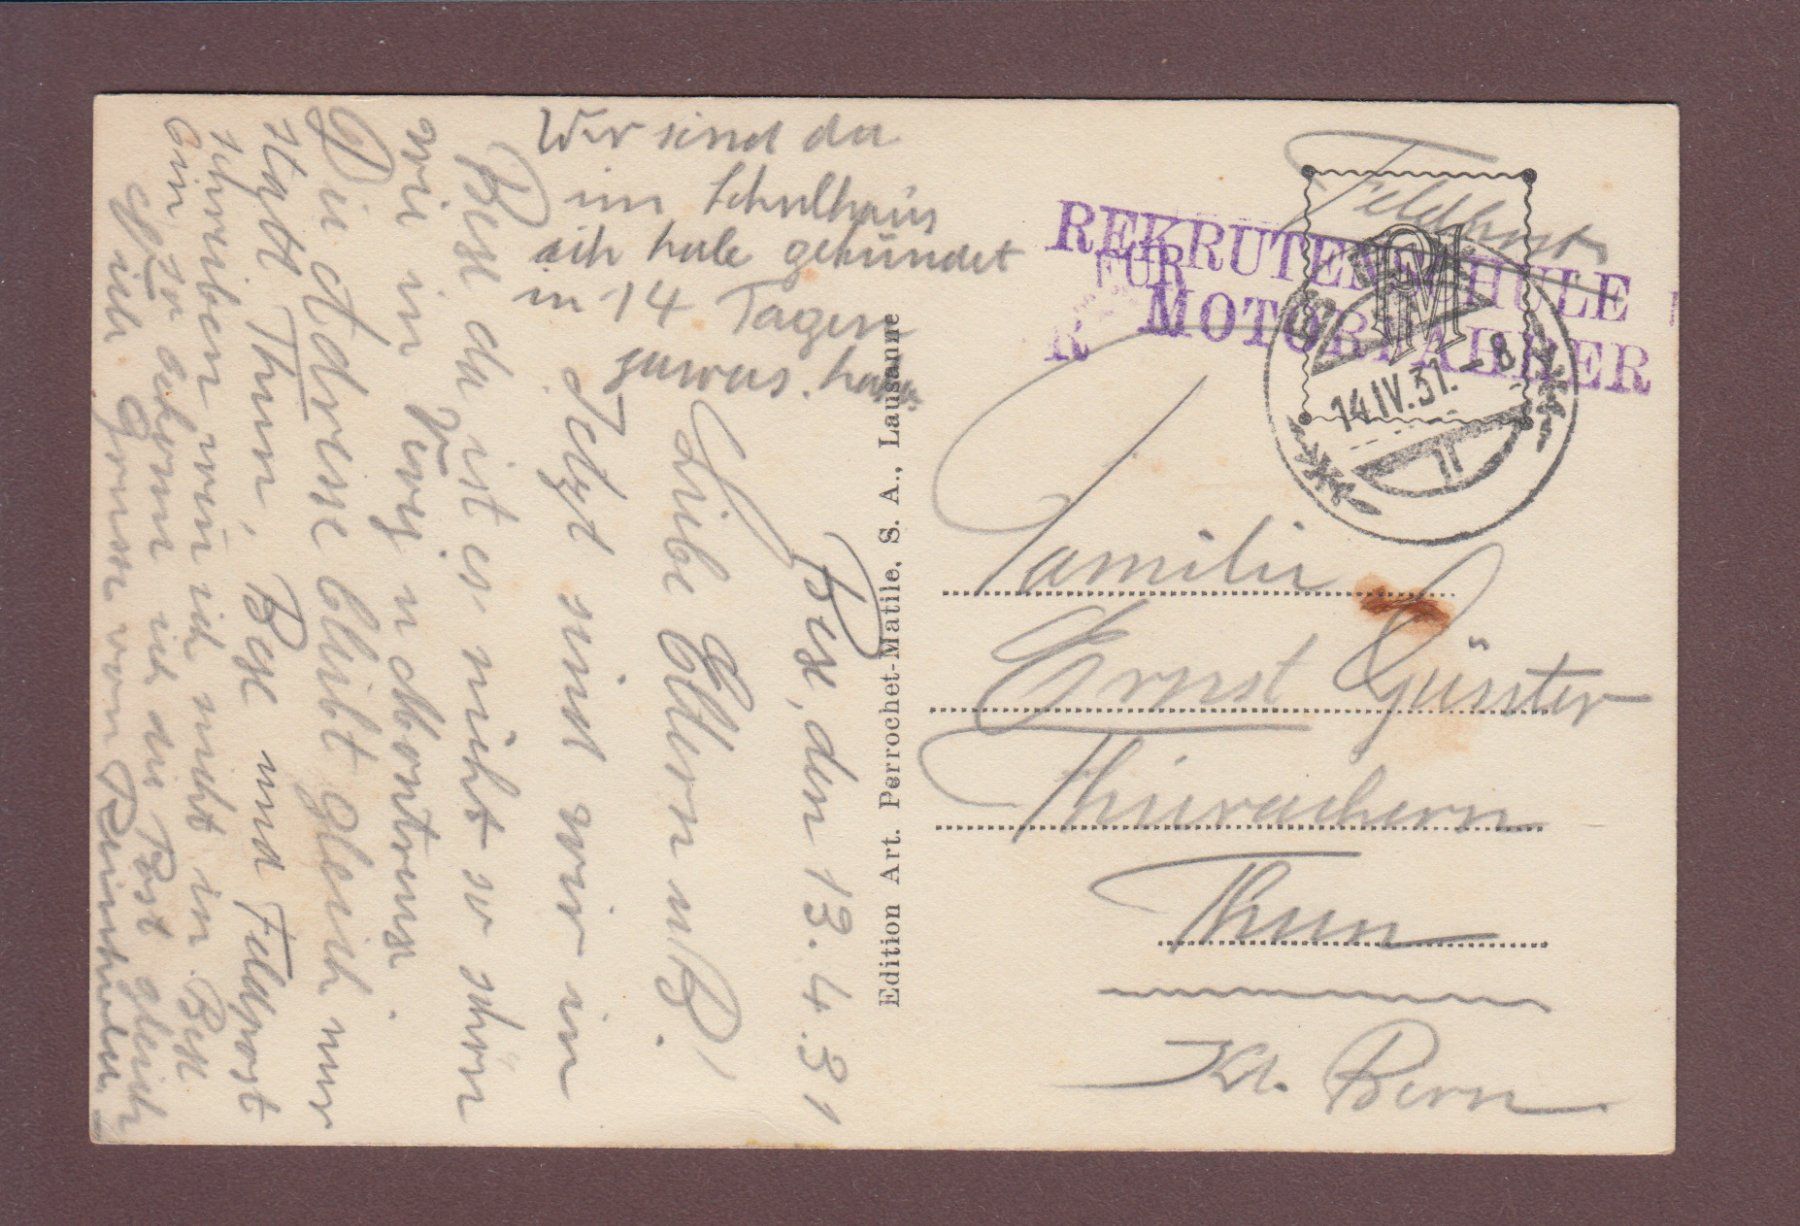 Bex, den 13.4.31
Liebe Eltern u B!
Jetzt sind wir in
Bex da ist es nicht so schön
wie in Vivi u Montreux.
Die Adresse bleibt gleich nur
statt Thun, Bex und Feldpost
schreiben wen ich nicht in Bex
bin so bekomm ich die Post gleich
Viele Grüsse von
Wir sind da
im Schulhaus
ich habe gekündet
in 14 Tagen
Edition Art. Perrochet-Matile, S. A., Lausanne
Feldpost
REKRUTENSCHULE
FÜR
MOTORFAHRER
14.IV.31.-8
Familie
Ernst Günter
Thierachern
Thun
Kt. Bern